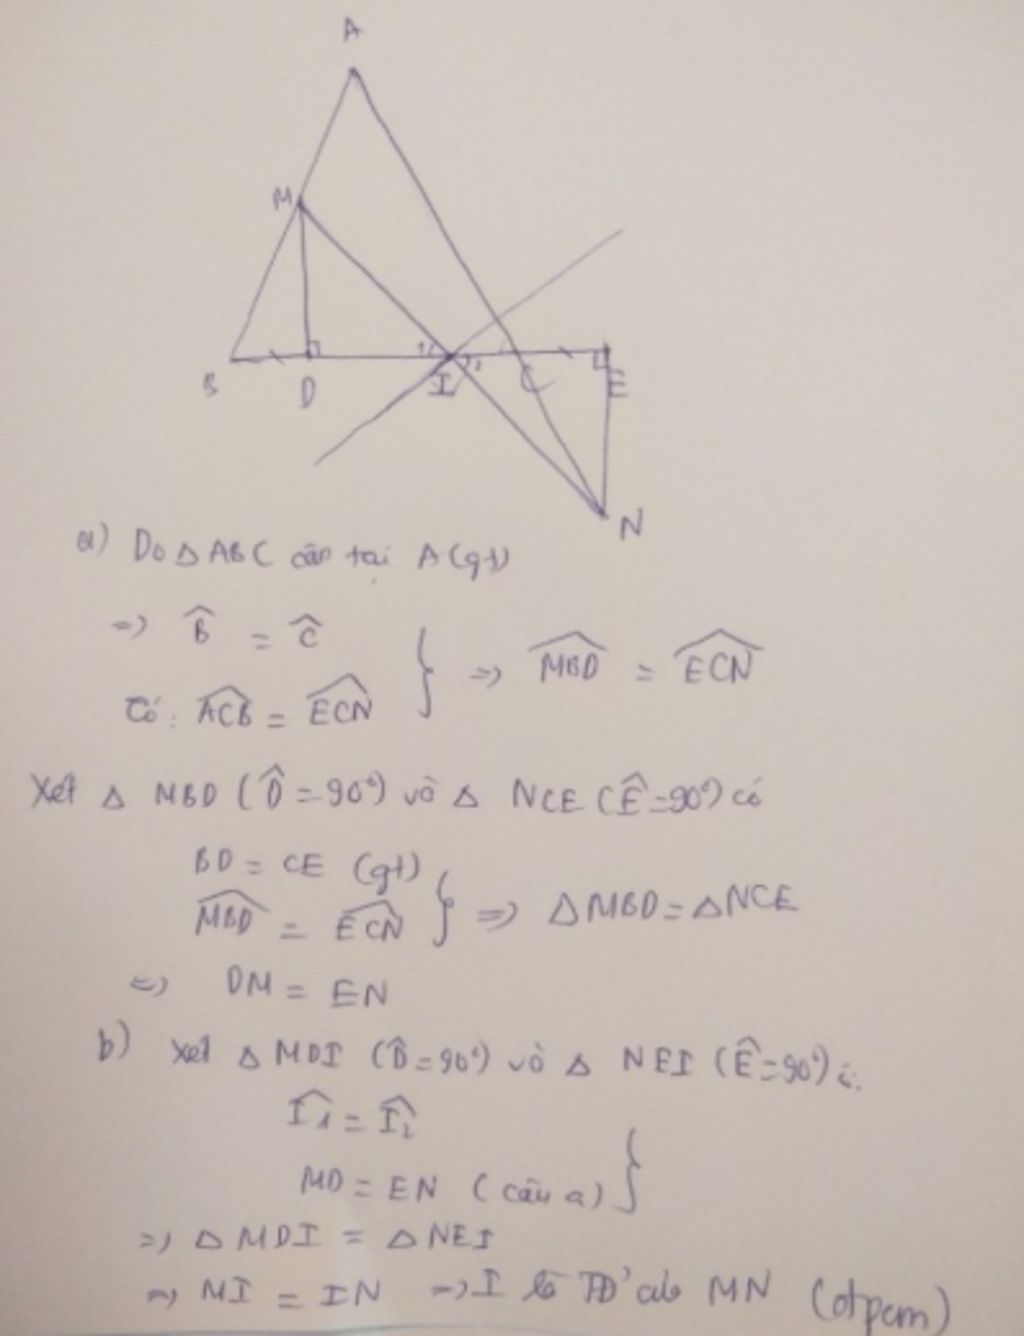 A
M
B
D
1
I
2
C
E
N
a) Do Δ ABC cân tại A (gt)
=> B̂ = Ĉ
Có: ACB^ = ECN^ } => MBD^ = ECN^
Xét Δ MBD (D̂ = 90°) và Δ NCE (Ê = 90°) có
BD = CE (gt)
MBD^ = ECN^ } => ΔMBD = ΔNCE
=> DM = EN
b) Xét Δ MDI (D̂ = 90°) và Δ NEI (Ê = 90°) có:
Î1 = Î2
MD = EN (câu a) }
=> Δ MDI = Δ NEI
=> MI = IN => I là TĐ' của MN (đpcm)